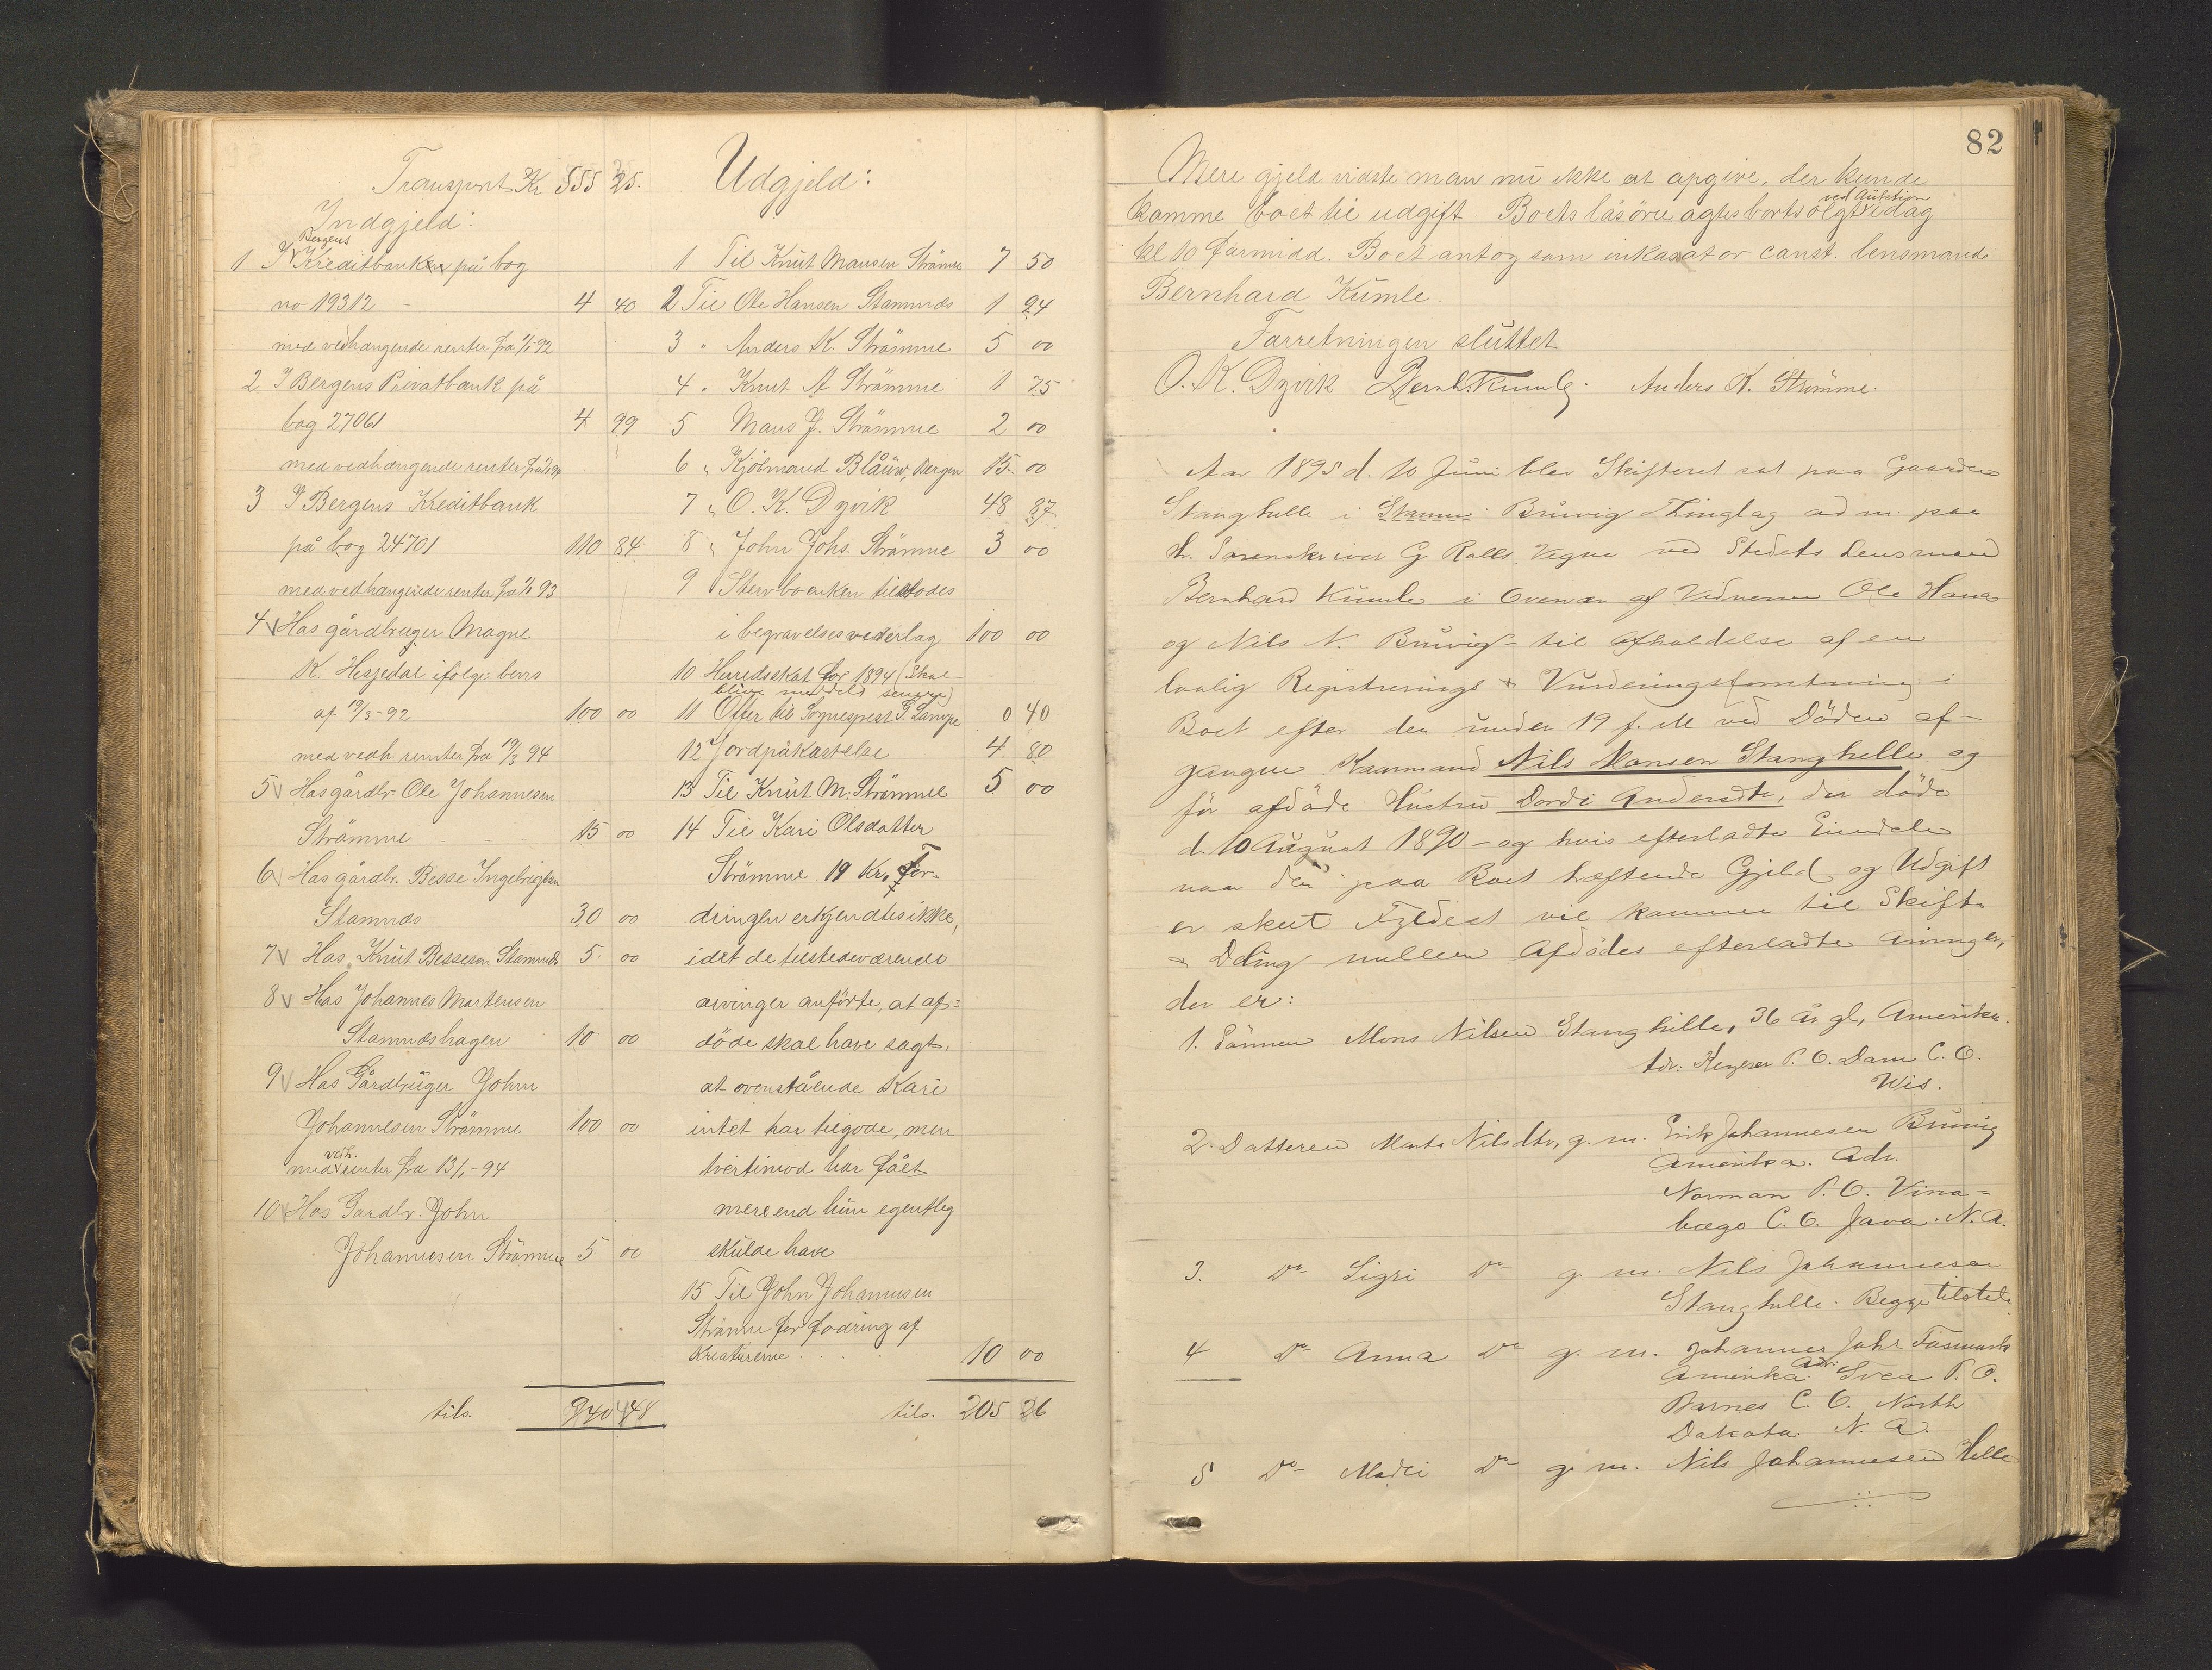 Transport Kr 555 25.
Indgjeld:
Bergens
1 I Kreditbanken på bog
no 19312 - 4 40
med vedhængende renter fra 1/1 92
2 I Bergens Privatbank på
bog 27061 4 99
med vedhængende renter fra
3 I Bergens Kreditbank
på bog 24701 110 84
med vedhængende renter fra 1/1 93
4 Hos gårdbruger Magne
K. Hesjedal ifølge bevis
af 19/3-92 100 00
med vedh. renter fra 19/3 94
5 Hos gårdbr. Ole Johannesen
Strömme - - 15 00
6 Hos gårdbr. Besse Ingebrigtsen
Stamnæs 30 00
7 Hos Knut Bessesen Stamnæs 5 00
8 Hos Johannes Martensen
Stamnæshagen 10 00
9 Hos Gårdbruger John
Johannesen Strömme 100 00
vedh.
med renter fra 13/1-94
10 Hos Gardbr. John
Johannesen Strömme 5 00
tils. 940 48
Udgjeld:
1 Til Knut Mansen Strömme 7 50
2 Til Ole Hansen Stamnæs 1 24
3 " Anders K. Strömme 5 00
4 " Knut A Strömme 1 75
5 Mans J. Strömme 2 00
6 " Kjöbmand Blåuw, Bergen 15 00
7 " O. K. Dyvik 48 87
8 " John Johs. Strömme 3 00
9 Stervboenken tilstodes
i begravelsesvederlag 100 00
10 Herredsskat for 1894 (Skal
blive meddelt senere)
11 Offer til Sogneprest G. Lampe 0 40
12 Jordpåkastelse 4 80
13 Til Knut M. Strömme 5 00
14 Til Kari Olsdatter
Strömme 19 Kr. For-
dringen erkjendtes ikke,
idet de tilstedeværende
arvinger anförte, at af-
döde skal have sagt,
at ovenstående Kari
intet har tilgode, men
tvertimod har fået
mere end hun egentleg
skulde have
15 Til John Johannesen
Strömme for fodring af
Kreaturerne . . . . 10 00
tils. 205 26
82
Mere gjeld vidste man nu ikke at opgive, der kunde
ved Auktion
komme boet til udgift. Boets lösöre agtes bortsolgt idag
kl 10 formidd. Boet antog som inkasator const. lensmand
Bernhard Kumle.
Forretningen sluttet
O. K. Dyvik Bernh. Kumle. Anders K. Strömme.
Aar 1895 d. 10 Juni blev Skifteret sat paa Gaarden
Stanghelle i Bruvig Thinglag adm. paa
Hr. Sorenskriver G Rolls Vegne ved Stedets Lensmand
Bernhard Kumle i Overvær af Vidnerne Ole Hana
og Nils N. Bruvig - til Afholdelse af en
lovlig Registrerings & Vurderingsforretning i
Boet efter den under 19 f. M ved Döden af-
gangne Kaarmand Nils Monsen Stanghelle og
før afdöde Hustru Dordi Andersdtr, der döde
d. 10 August 1890 - og hvis efterladte Eiendele
naar den paa Boet hæftende Gjeld og Udgift
er skeet Fyldest vil komme til Skifte
& Deling mellem Afdödes efterladte Arvinger,
der er:
1. Sönnen Mons Nilsen Stanghelle, 36 år gl, Amerika.
Adr: Keyeser P. O. Dane C. O.
Wis.
2. Datteren Marta Nilsdtr, g. m. Erik Johannesen Bruvig
Amerika. Adr.
Norman P. O. Vina-
bego C. O. Java. N. A.
3. Do Sigri Do g. m. Nils Johannesen
Stanghelle. Begge tilstede.
4 Do Anna Do g. m. Johannes Johs Fosmark
Adr.
Amerika. Svea P. O.
Barnes C. O. North
Dakota. N. A.
5 Do Madli Do g. m. Nils Johannesen Helle